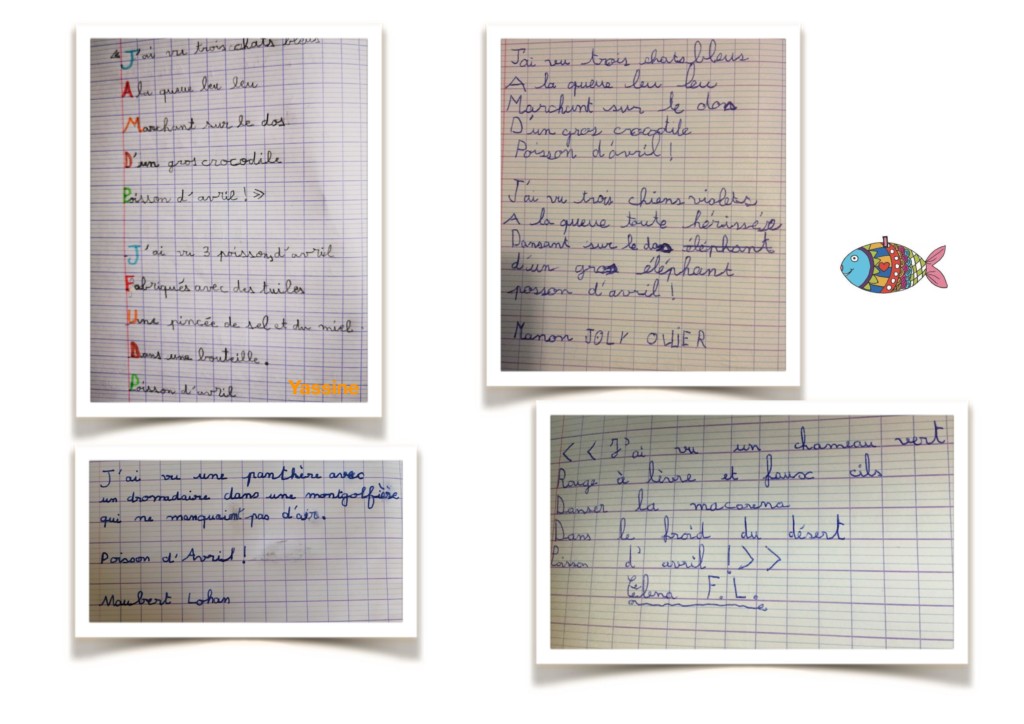 « J'ai vu trois chats bleus
A la queue leu leu
Marchant sur le dos
D'un gros crocodile
Poisson d'avril ! »
J'ai vu 3 poissons d'avril
Fabriqués avec des tuiles
Une pincée de sel et du miel
Dans une bouteille.
Poisson d'avril
Yassine
J'ai vu trois chats bleus
A la queue leu leu
Marchant sur le dos
D'un gros crocodile
Poisson d'avril !
J'ai vu trois chiens violets
A la queue toute hérissée
Dansant sur le dos éléphant
d'un gros éléphant
posson d'avril !
Manon JOLY OLLIER
J'ai vu une panthère avec
un dromadaire dans une montgolfière
qui ne manquaint pas d'airs.
Poisson d'Avril !
Maubert Lohan
<< J'ai vu un chameau vert
Rouge à lèvre et faux cils
Danser la macarena
Dans le froid du désert
Poisson d'avril ! >>
Elena F.L.